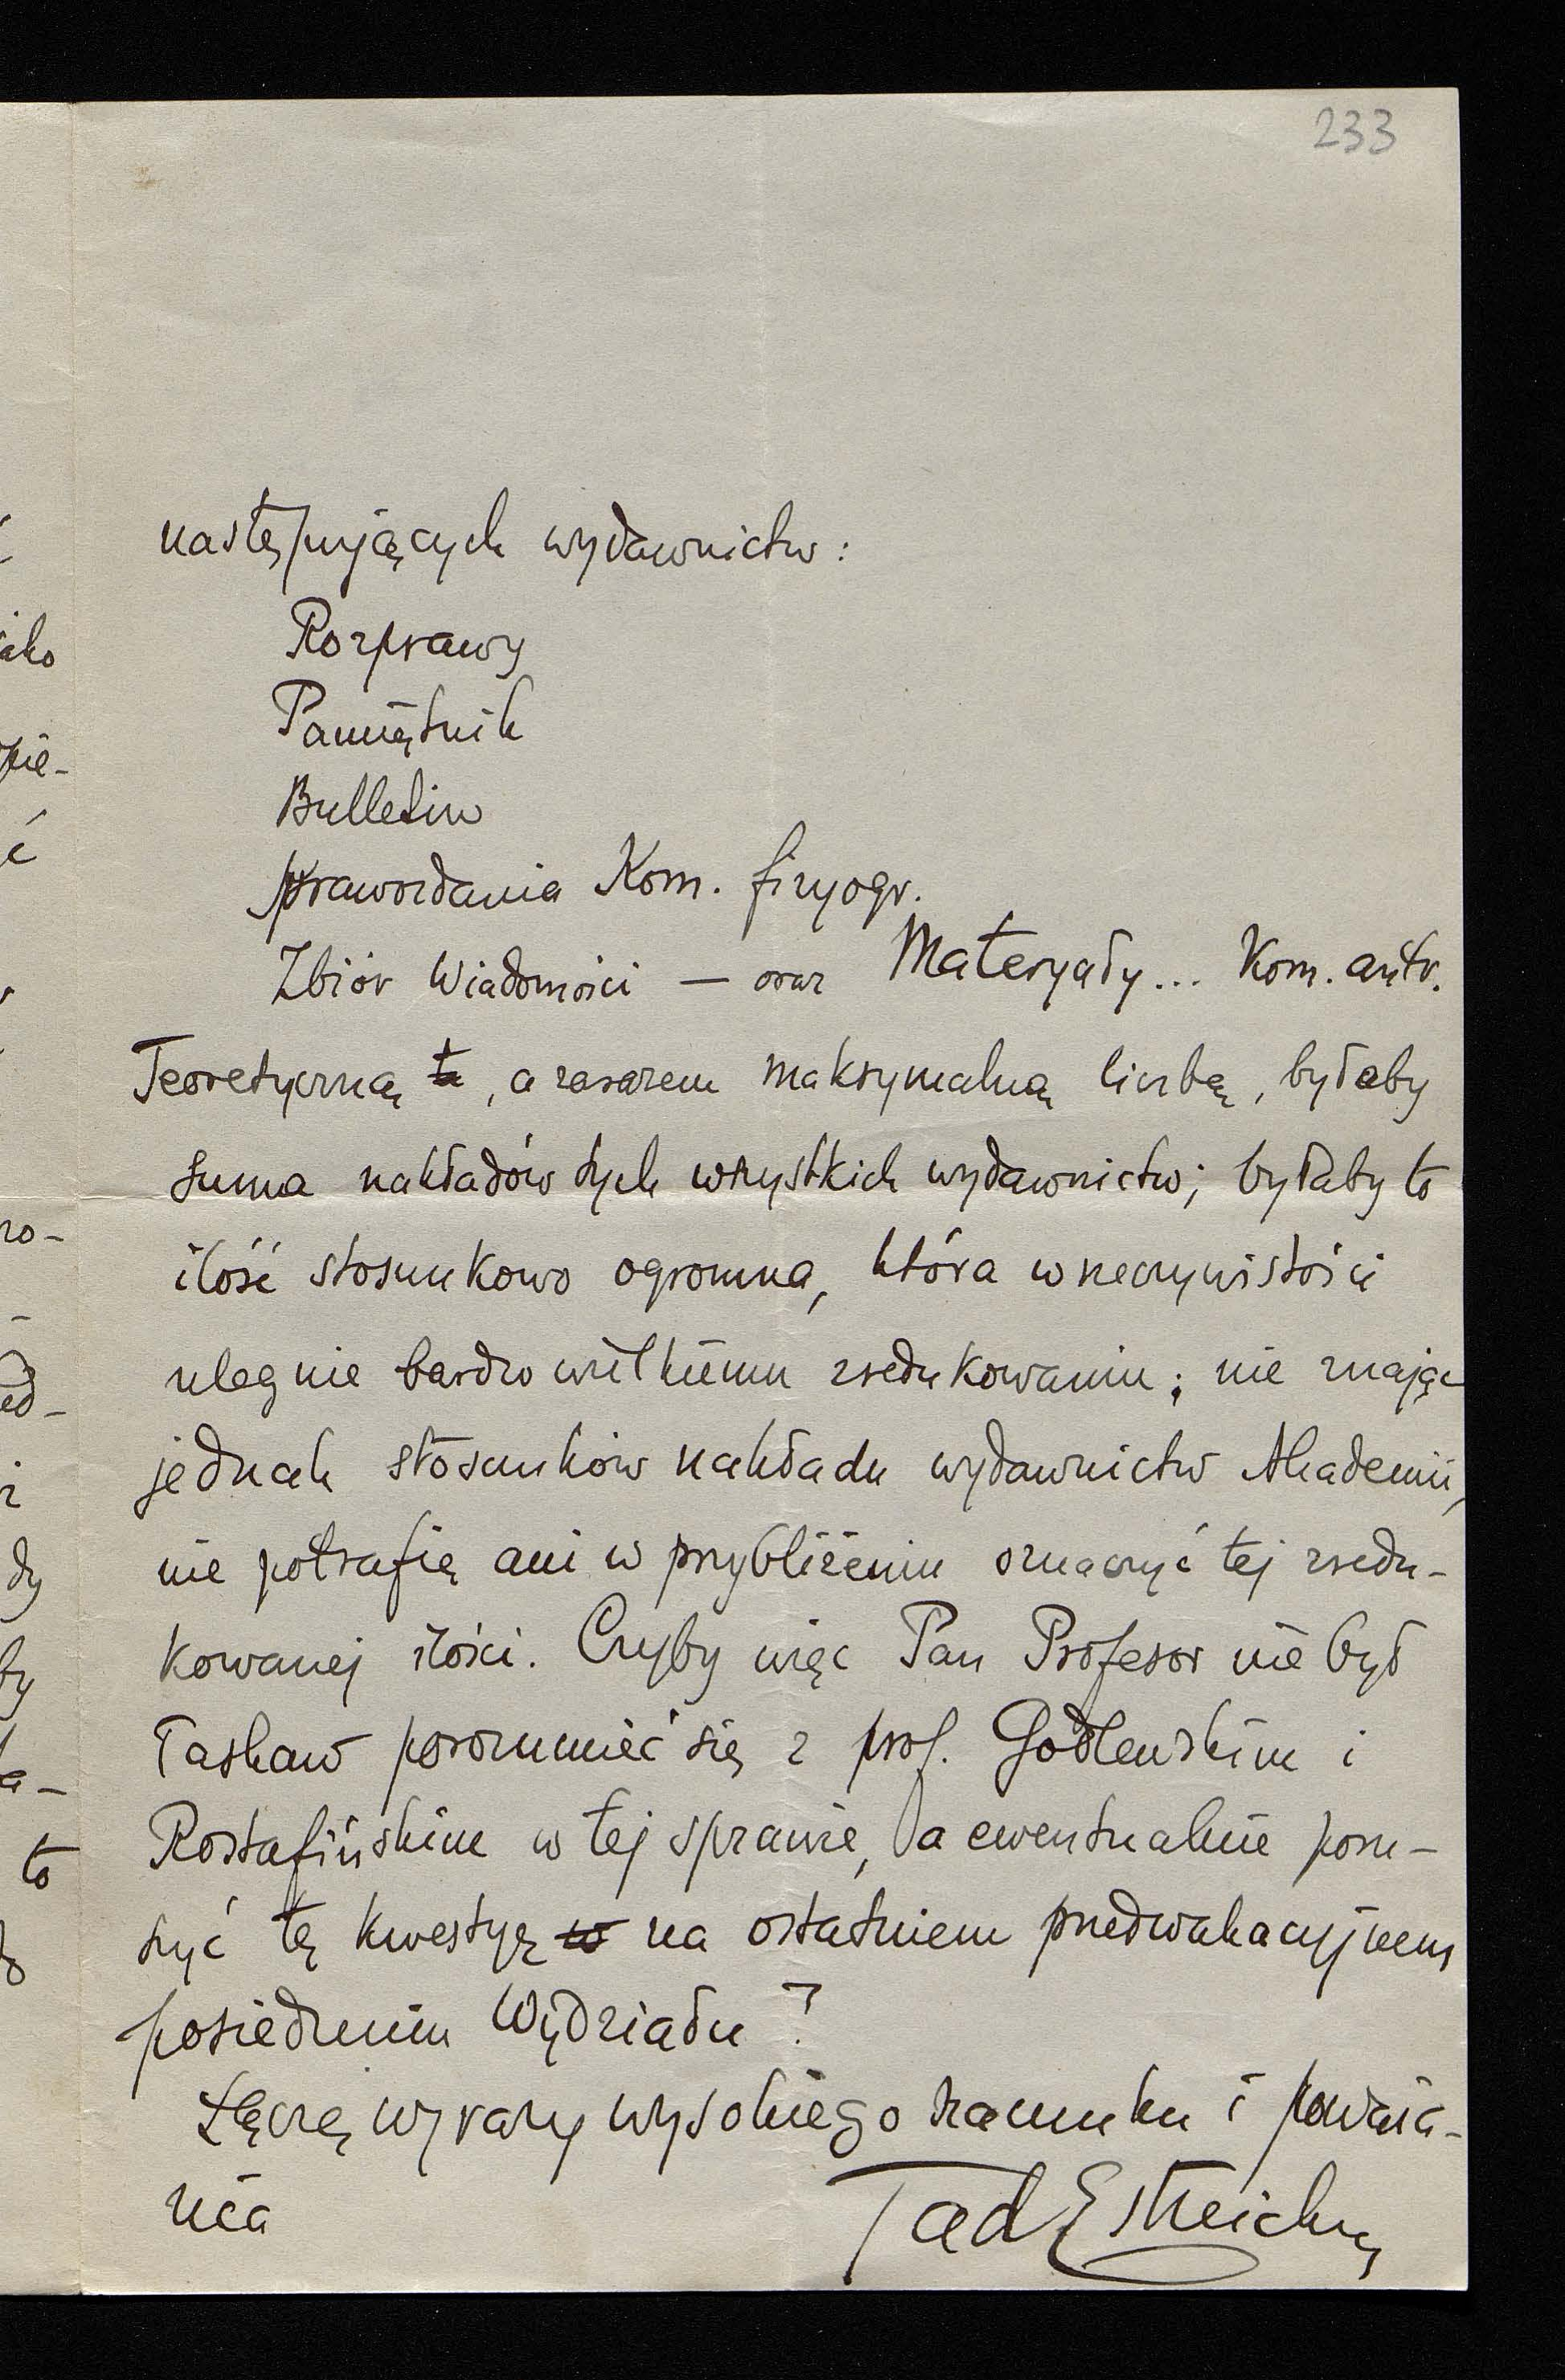 233
następujących wydawnictw:
Rozprawy
Pamiętnik
Bulletin
Sprawozdania Kom. fizyogr.
Zbiór Wiadomości — oraz Materyały... Kom. antr.
Teoretyczną, a zarazem maksymalną liczbą, byłaby
suma nakładów tych wszystkich wydawnictw; byłaby to
ilość stosunkowo ogromna, która w rzeczywistości
ulegnie bardzo wielkiemu zredukowaniu; nie znając
jednak stosunków nakładu wydawnictw Akademii,
nie potrafię ani w przybliżeniu oznaczyć tej zredu-
kowanej ilości. Czyby więc Pan Profesor nie był
łaskaw porozumieć się z prof. Godlewskim i
Rostafińskim w tej sprawie, a ewentualnie poru-
szyć tę kwestyę na ostatniem przedwakacyjnem
posiedzeniu Wydziału?
Łączę wyrazy wysokiego szacunku i poważa-
nia
Tad Estreicher
ako
pie-
ć
ro-
ed-
i
dy
by
a-
to